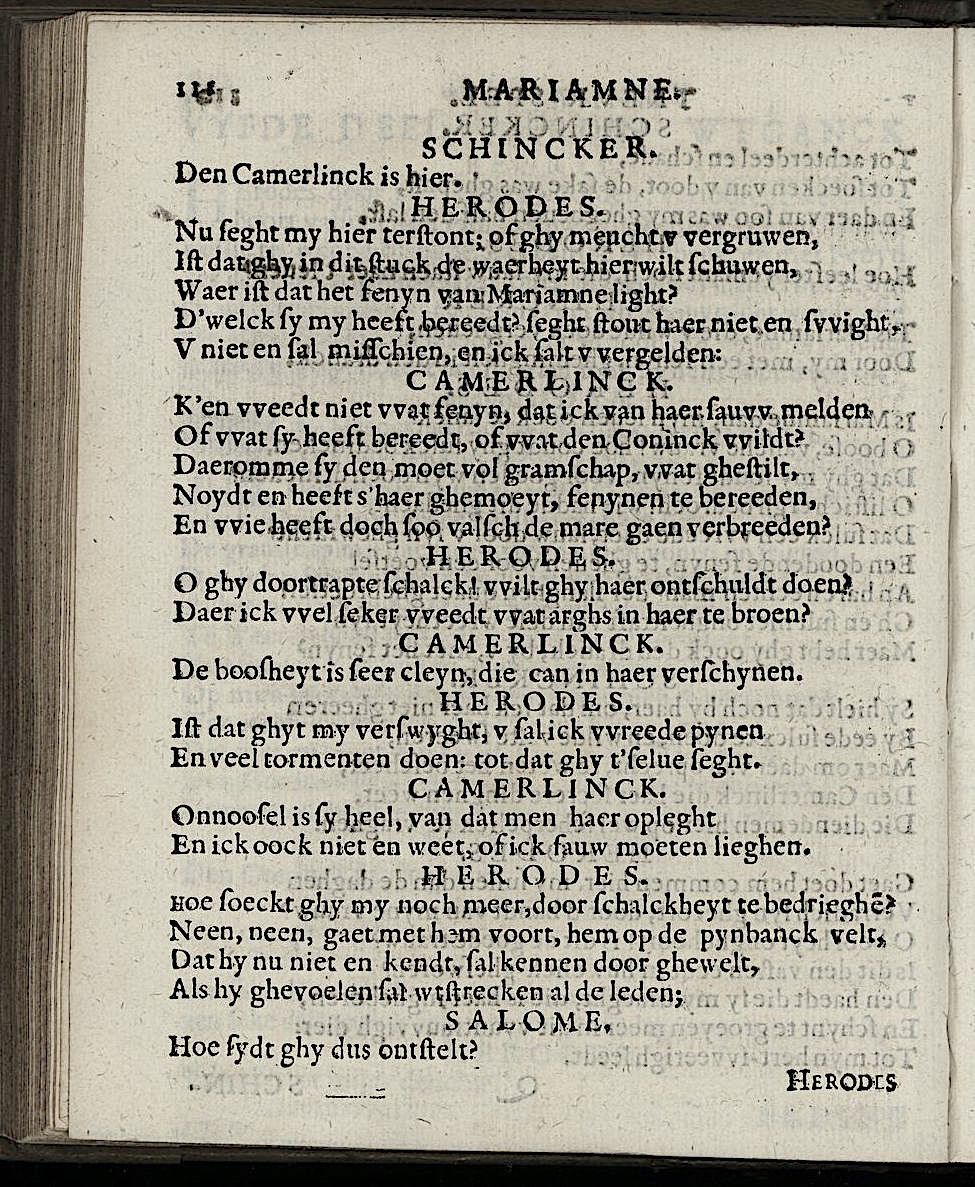 MARIAMNE.
SCHINCKER.
Den Camerlinck is hier.
HERODES.
Nu ſeght my hier terſtont; of ghy meucht v vergruwen,
Iſt dat ghy in dit ſtuck de waerheyt hier wilt ſchuwen,
Waer iſt dat het fenyn van Mariamne light?
D'welck ſy my heeft bereedt? ſeght ſtout haer niet en ſvvight,
V niet en ſal miſſchien, en ick ſalt v vergelden:
CAMERLINCK.
K'en vveedt niet vvat fenyn, dat ick van haer ſauvv melden
Of vvat ſy heeft bereedt, of vvat den Coninck vvildt?
Daeromme ſy den moet vol gramſchap, vvat gheſtilt,
Noydt en heeft s'haer ghemoeyt, fenynen te bereeden,
En vvie heeft doch ſoo valſch de mare gaen verbreeden?
HERODES.
O ghy doortrapte ſchalck! vvilt ghy haer ontſchuldt doen?
Daer ick vvel ſeker vveedt vvat arghs in haer te broen?
CAMERLINCK.
De booſheyt is ſeer cleyn, die can in haer verſchynen.
HERODES.
Iſt dat ghyt my verſwyght, v ſal ick vvreede pynen
En veel tormenten doen: tot dat ghy t'ſelue ſeght.
CAMERLINCK.
Onnooſel is ſy heel, van dat men haer opleght
En ick oock niet en weet, of ick ſauw moeten lieghen.
HERODES.
Hoe ſoeckt ghy my noch meer, door ſchalckheyt te bedrieghē?
Neen, neen, gaet met hem voort, hem op de pynbanck velt,
Dat hy nu niet en kendt, ſal kennen door ghewelt,
Als hy ghevoelen ſal wtſtrecken al de leden;
SALOME,
Hoe ſydt ghy dus ontſtelt?
HERODES